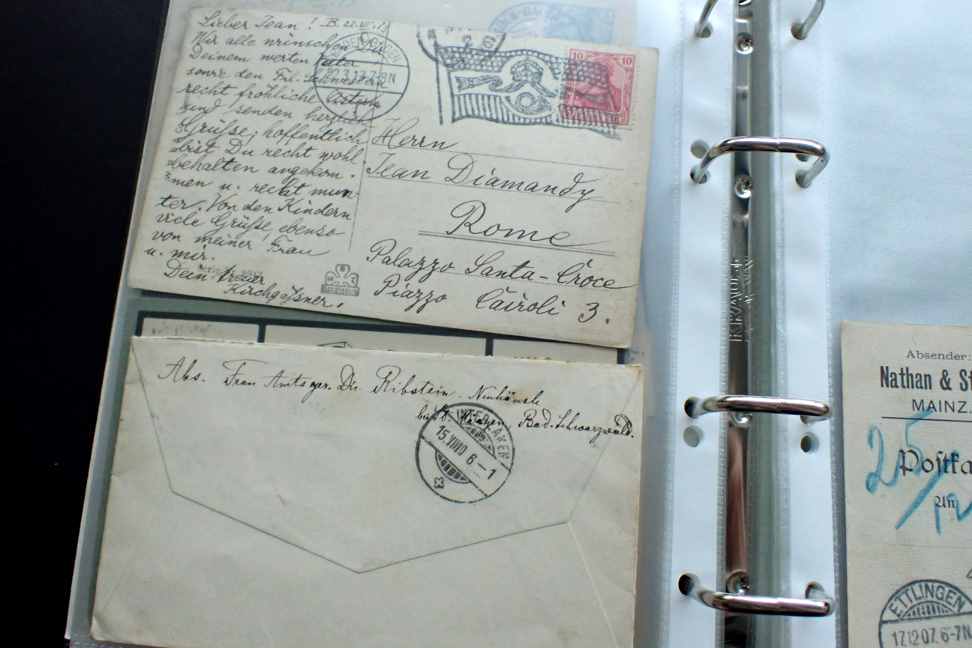 Lieber Jean!
Wir alle wünschen Dir,
Deinem werten Vater
sowie den Frl. Schwestern
recht fröhliche Ostern
und senden herzlich
Grüße; hoffentlich
bist Du recht wohl
behalten angekom-
men u. recht mun-
ter. Von den Kindern
viele Grüße, ebenso
von meiner Frau
u. mir.
Dein treuer
Kirchgäßner.
10 10
Herrn
Jean Diamandy
Rome
Palazzo Santa-Croce
Piazza Cairoli 3.
Abs. Frau Amtsger. Dir. Ribstein
Bad. Schwarzwald.
INTERLAKEN
15.VIII.10 6-1
KRAUSE
Absender:
Nathan & St
MAINZ
Postka
25/12
An
ETTLINGEN
17.12.07. 6-7N